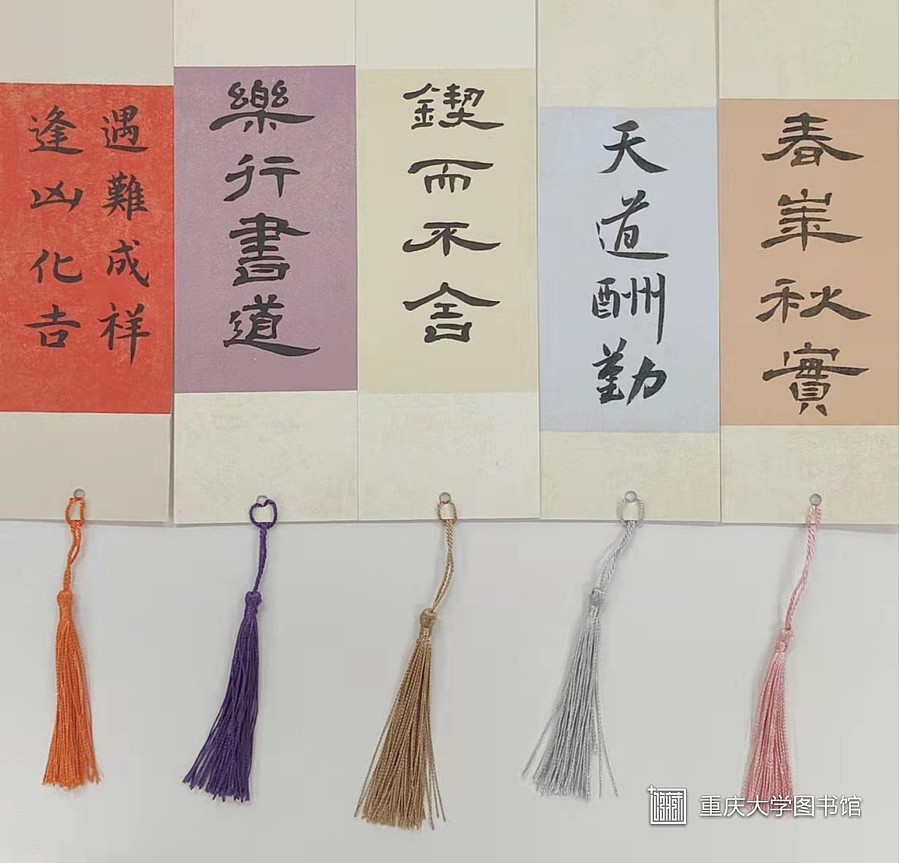 遇難成祥
逢凶化吉
樂行書道
鍥而不舍
天道酬勤
春崋秋實
重庆大学图书馆